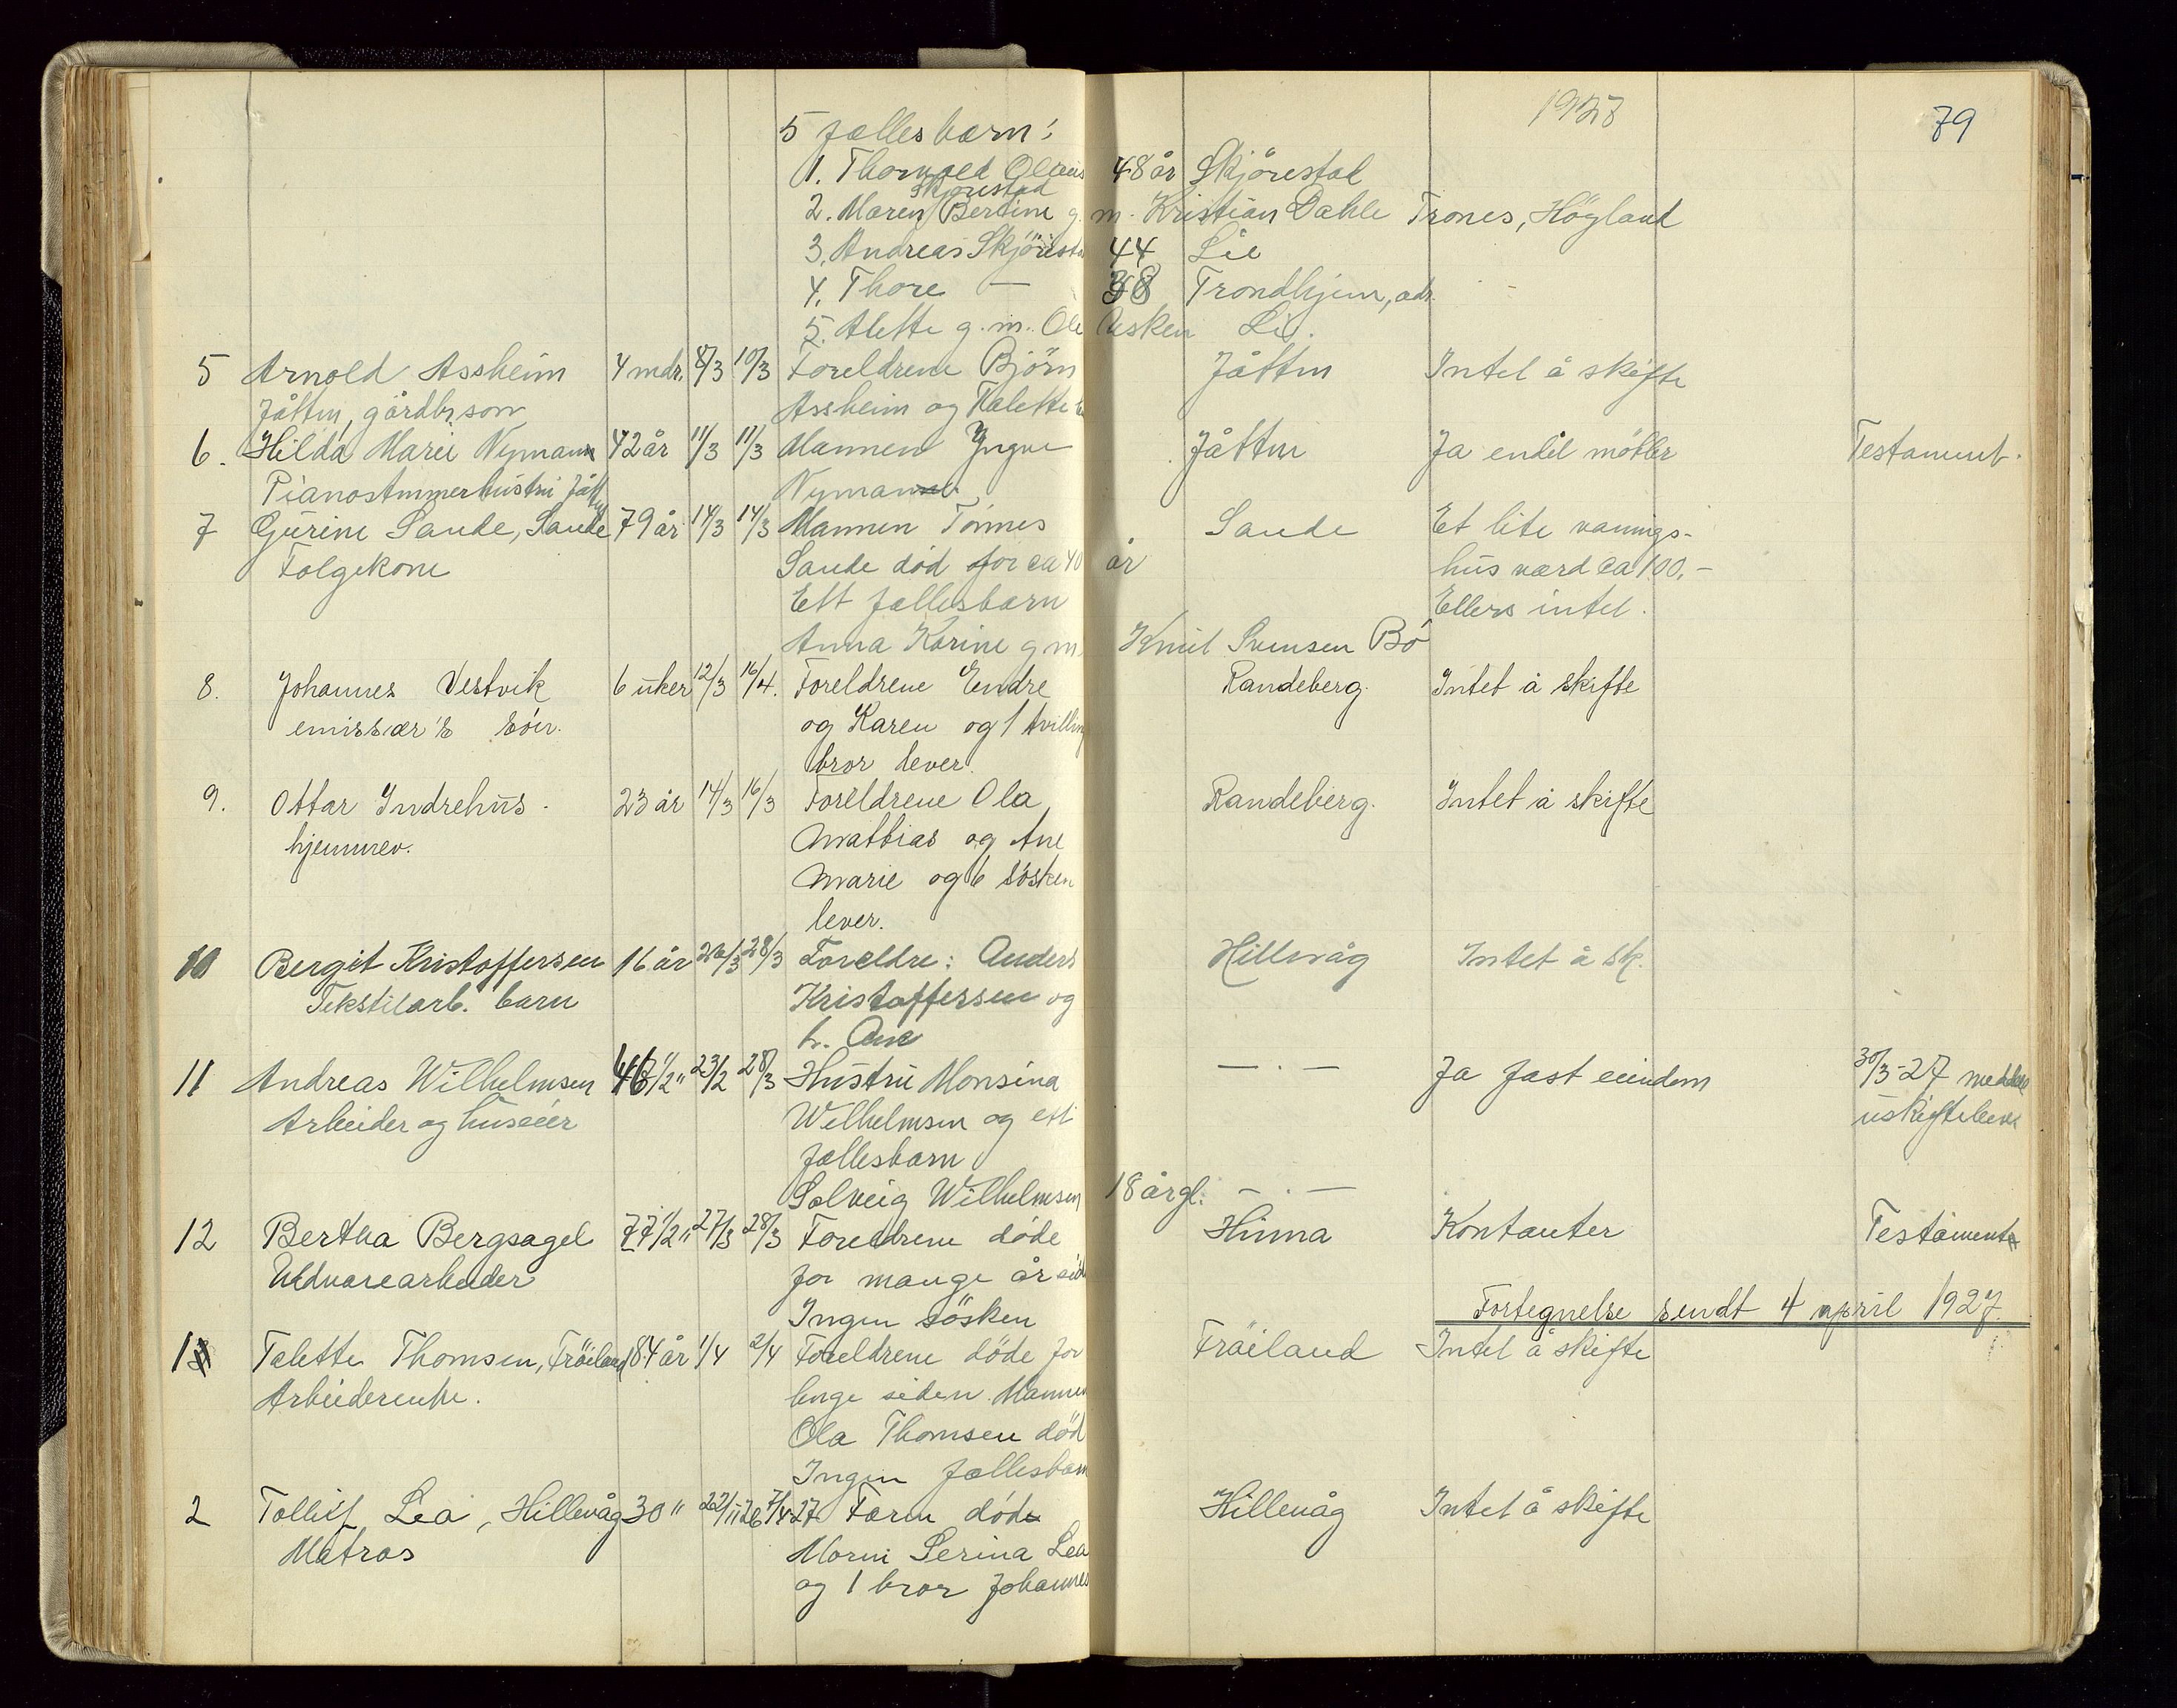 1927 79
5 fællesbarn:
1. Thorvald Olaus 48 år Skjörestad
Skjörestad
2. Maren Bertine g. m. Kristian Dahle Trones, Högland
3. Andreas Skjörestad 44 Lie
4. Thore — 38 Trondhjem, adr.
5. Alette g. m. Ole Asken Li.
5 Arnold Assheim 4 mdr. 8/3 10/3 Foreldrene Björn Jåttin Intet å skifte
Jåttin, gårdbr. son Assheim og Malette
6. Hilda Marie Nyman 42 år 11/3 11/3 Mannen Yngve Jåttin Ja endel möbler Testament.
Pianostemmerhustru Jåttin Nyman
7 Gurine Sande, Sande 79 år 14/3 14/3 Mannen Tönnes Sande Et lite vånings-
Folgekone Sande död for ca 40 år hus værd ca 100.-
Ett fællesbarn Ellers intet.
Anna Karine g m Knut Svensen Bö
8. Johannes Vestvik 6 uker 12/3 16/4. Foreldrene Endre Randeberg. Intet å skifte
emissær's sön. og Karen og 1 tvilling
bror lever.
9. Ottar Indrehus. 23 år 14/3 16/3 Foreldrene Ola Randeberg. Intet å skifte
hjemmev. Mathias og Ane
Marie og 6 sösken
lever.
10 Bergit Kristoffersen 16 år 26/3 28/3 Foreldre: Anders Hillevåg Intet å sk.
Tekstilarb. barn Kristoffersen og
h. Ane
11 Andreas Wilhelmsen 46 1/2 " 23/2 28/3 Hustru Monsina — . — Ja fast eiendom 30/3-27 meddelt
Arbeider og huseier Wilhelmsen og ett uskiftebev.
fællesbarn
Solveig Wilhelmsen 18 år gl. — . —
12 Bertha Bergsagel 77 1/2 " 27/3 28/3 Foreldrene döde Hinna Kontanter Testament
Uldvarearbeider for mange år siden
Ingen sösken Fortegnelse sendt 4 april 1927.
1 Talette Thomsen, Fröiland 84 år 1/4 2/4 Foreldrene döde for Fröiland Intet å skifte
Arbeiderenke. lenge siden. Mannen
Ola Thomsen död
Ingen fællesbarn
2 Tolleif Lea, Hillevåg 30 " 22/11 26 7/4 27 Faren död Hillevåg Intet å skifte
Matros Moren Serina Lea
og 1 bror Johannes